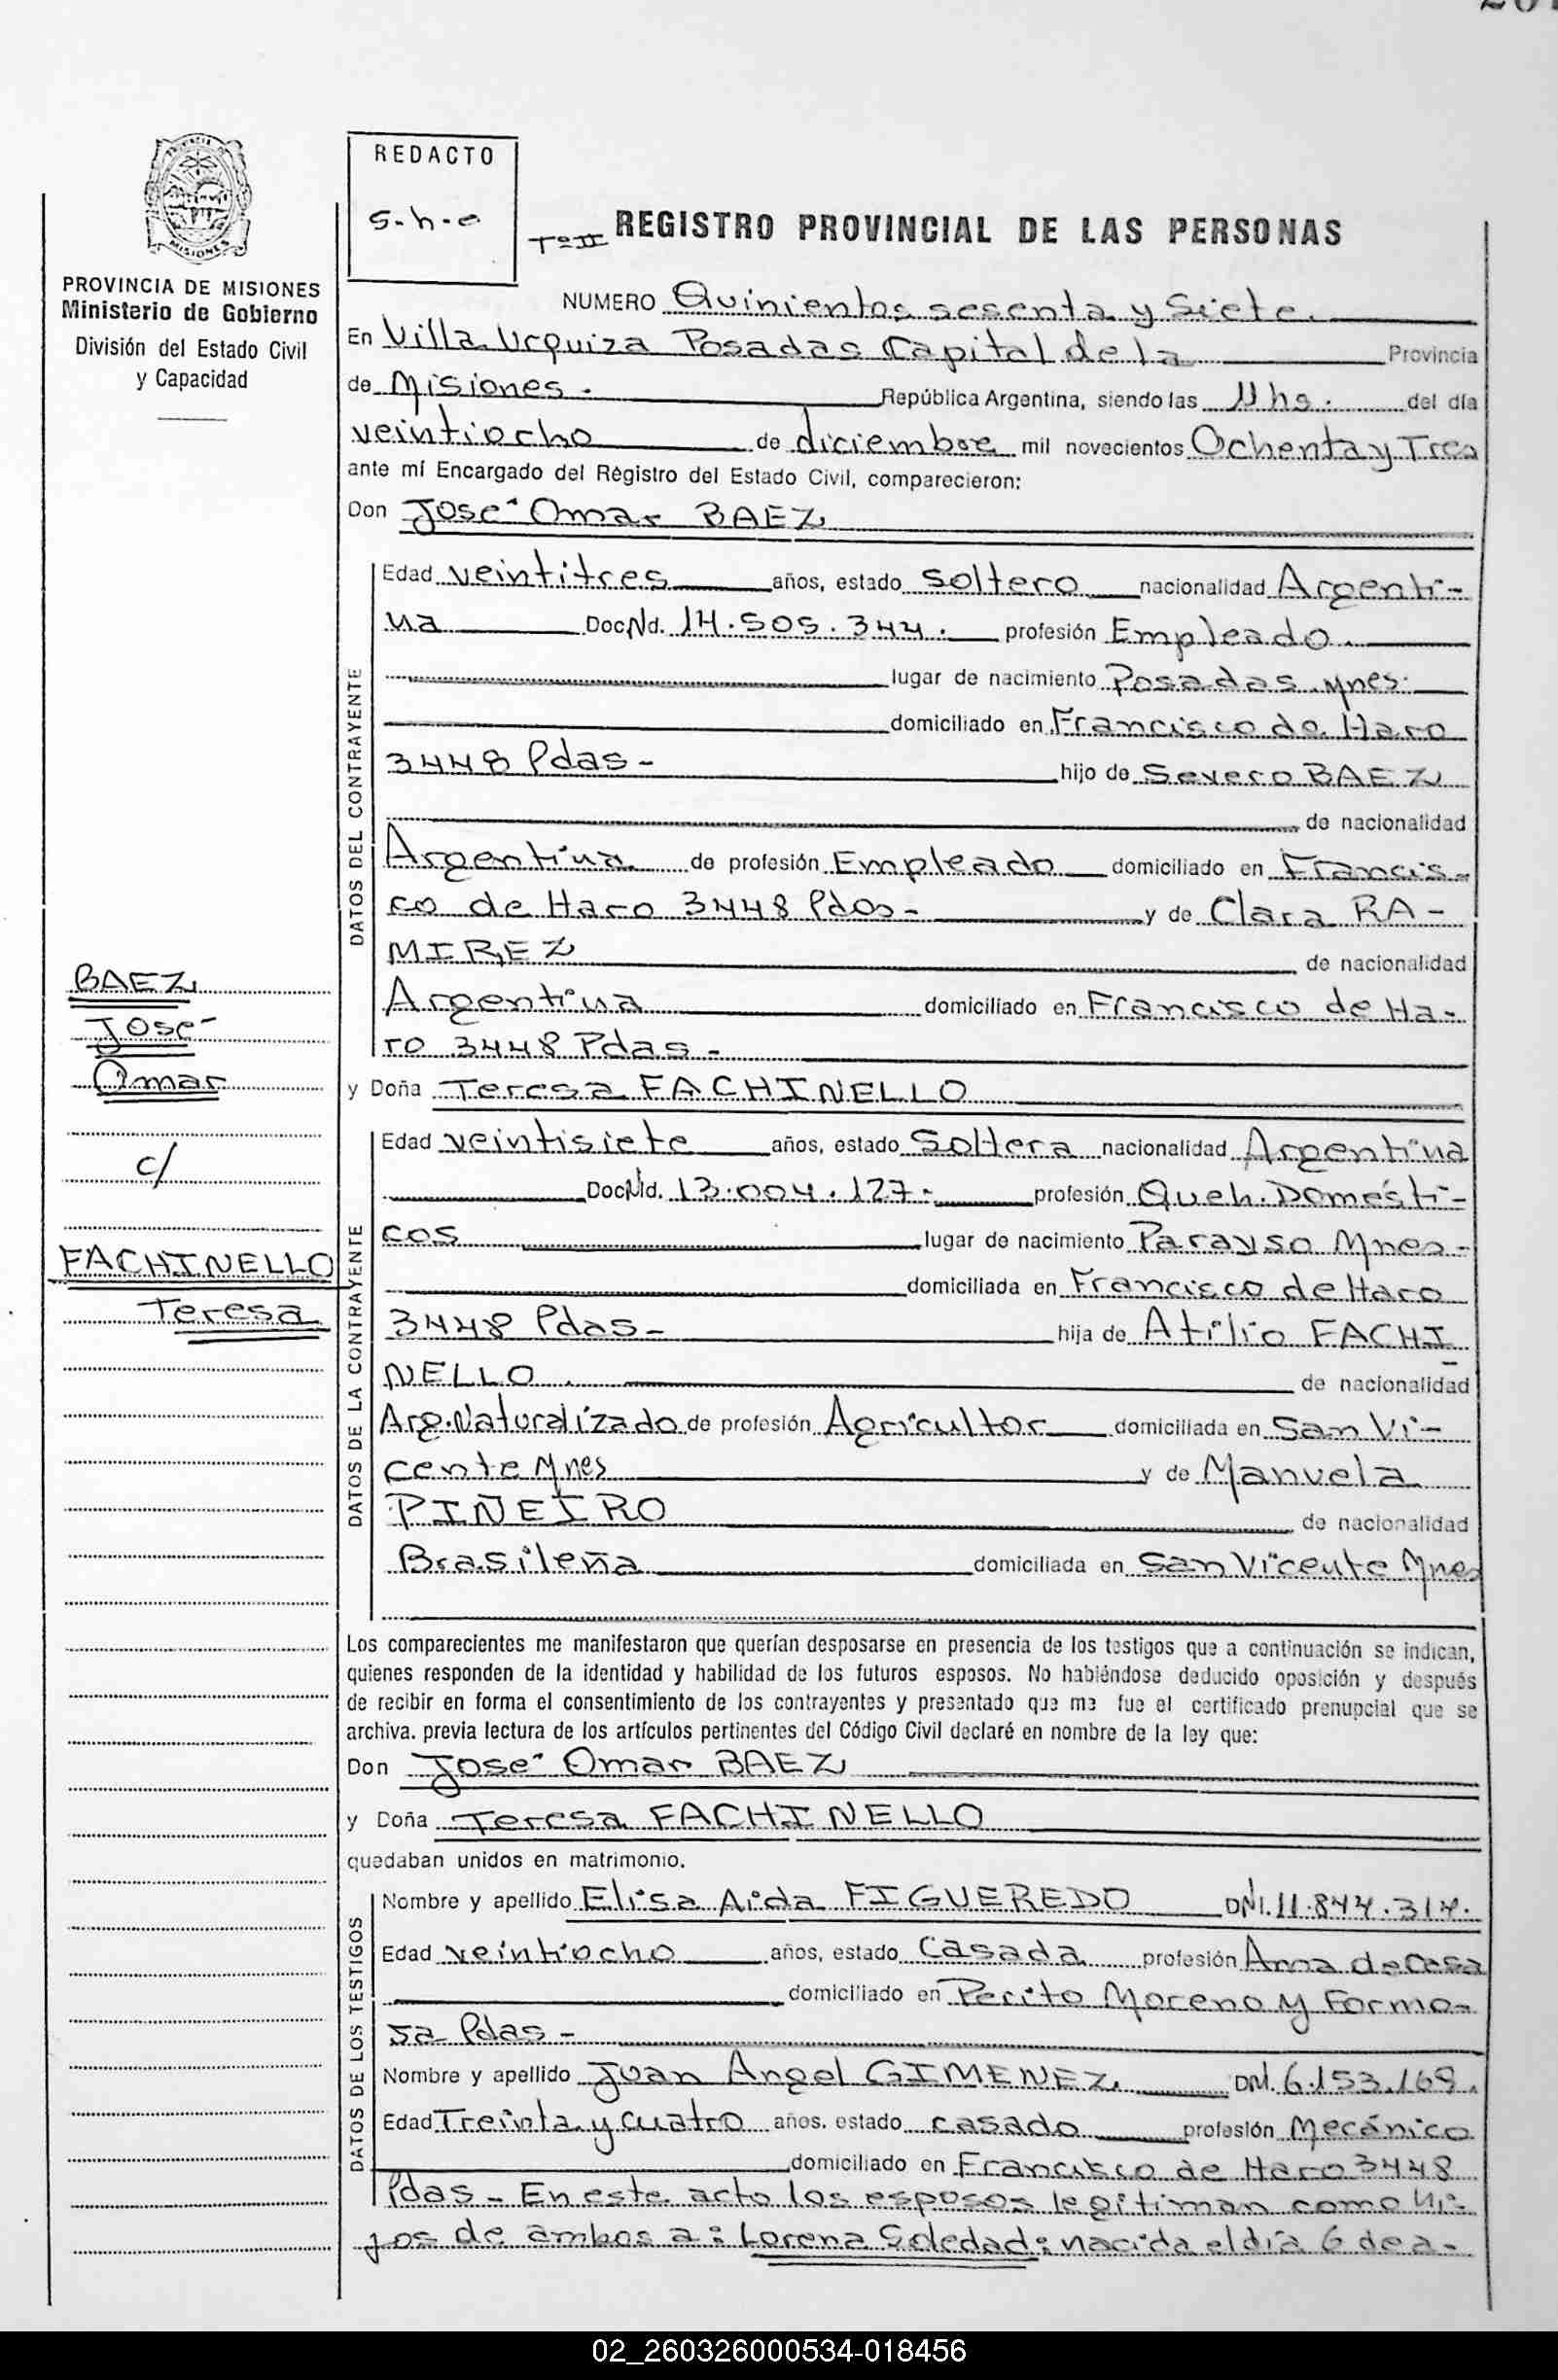 REDACTO
S-h-o
Tº II REGISTRO PROVINCIAL DE LAS PERSONAS
PROVINCIA DE MISIONES
Ministerio de Gobierno
División del Estado Civil
y Capacidad
NUMERO Quinientos sesenta y Siete.
En Villa Urquiza Posadas Capital de la Provincia
de Misiones. República Argentina, siendo las 11 hs. del día
veintiocho de diciembre mil novecientos Ochenta y Tres
ante mí Encargado del Registro del Estado Civil, comparecieron:
Don José Omar BAEZ
DATOS DEL CONTRAYENTE
Edad veintitres años, estado Soltero nacionalidad Argenti-
na Doc.Nd. 14.505.344. profesión Empleado.
lugar de nacimiento Posadas Mnes.
domiciliado en Francisco de Haro
3448 Pdas- hijo de Severo BAEZ
de nacionalidad
Argentina de profesión Empleado domiciliado en Francis-
co de Haro 3448 Pdas- y de Clara RA-
MIREZ de nacionalidad
Argentina domiciliado en Francisco de Ha-
ro 3448 Pdas-
BAEZ
José
Omar
c/
FACHINELLO
Teresa
y Doña Teresa FACHINELLO
DATOS DE LA CONTRAYENTE
Edad veintisiete años, estado Soltera nacionalidad Argentina
Doc.Nd. 13.004.127. profesión Queh. Domésti-
cos lugar de nacimiento Parayso Mnes-
domiciliada en Francisco de Haro
3448 Pdas- hija de Atilio FACHI
NELLO. de nacionalidad
Arg.Naturalizado de profesión Agricultor domiciliada en San Vi-
cente Mnes y de Manuela
PIÑEIRO de nacionalidad
Brasileña domiciliada en San Vicente Mnes
Los comparecientes me manifestaron que querían desposarse en presencia de los testigos que a continuación se indican,
quienes responden de la identidad y habilidad de los futuros esposos. No habiéndose deducido oposición y después
de recibir en forma el consentimiento de los contrayentes y presentado que me fue el certificado prenupcial que se
archiva. previa lectura de los artículos pertinentes del Código Civil declaré en nombre de la ley que:
Don José Omar BAEZ
y Doña Teresa FACHINELLO
quedaban unidos en matrimonio.
DATOS DE LOS TESTIGOS
Nombre y apellido Elisa Aida FIGUEREDO DNI.11.844.314.
Edad veintiocho años, estado Casada profesión Ama de Casa
domiciliado en Perito Moreno y Formo-
sa Pdas-
Nombre y apellido Juan Angel GIMENEZ DNI. 6.153.169.
Edad Treinta y cuatro años. estado casado profesión Mecánico
domiciliado en Francisco de Haro 3448
Pdas- En este acto los esposos legitiman como hi-
jos de ambos a: Lorena Soledad: nacida el día 6 de a-
02_260326000534-018456